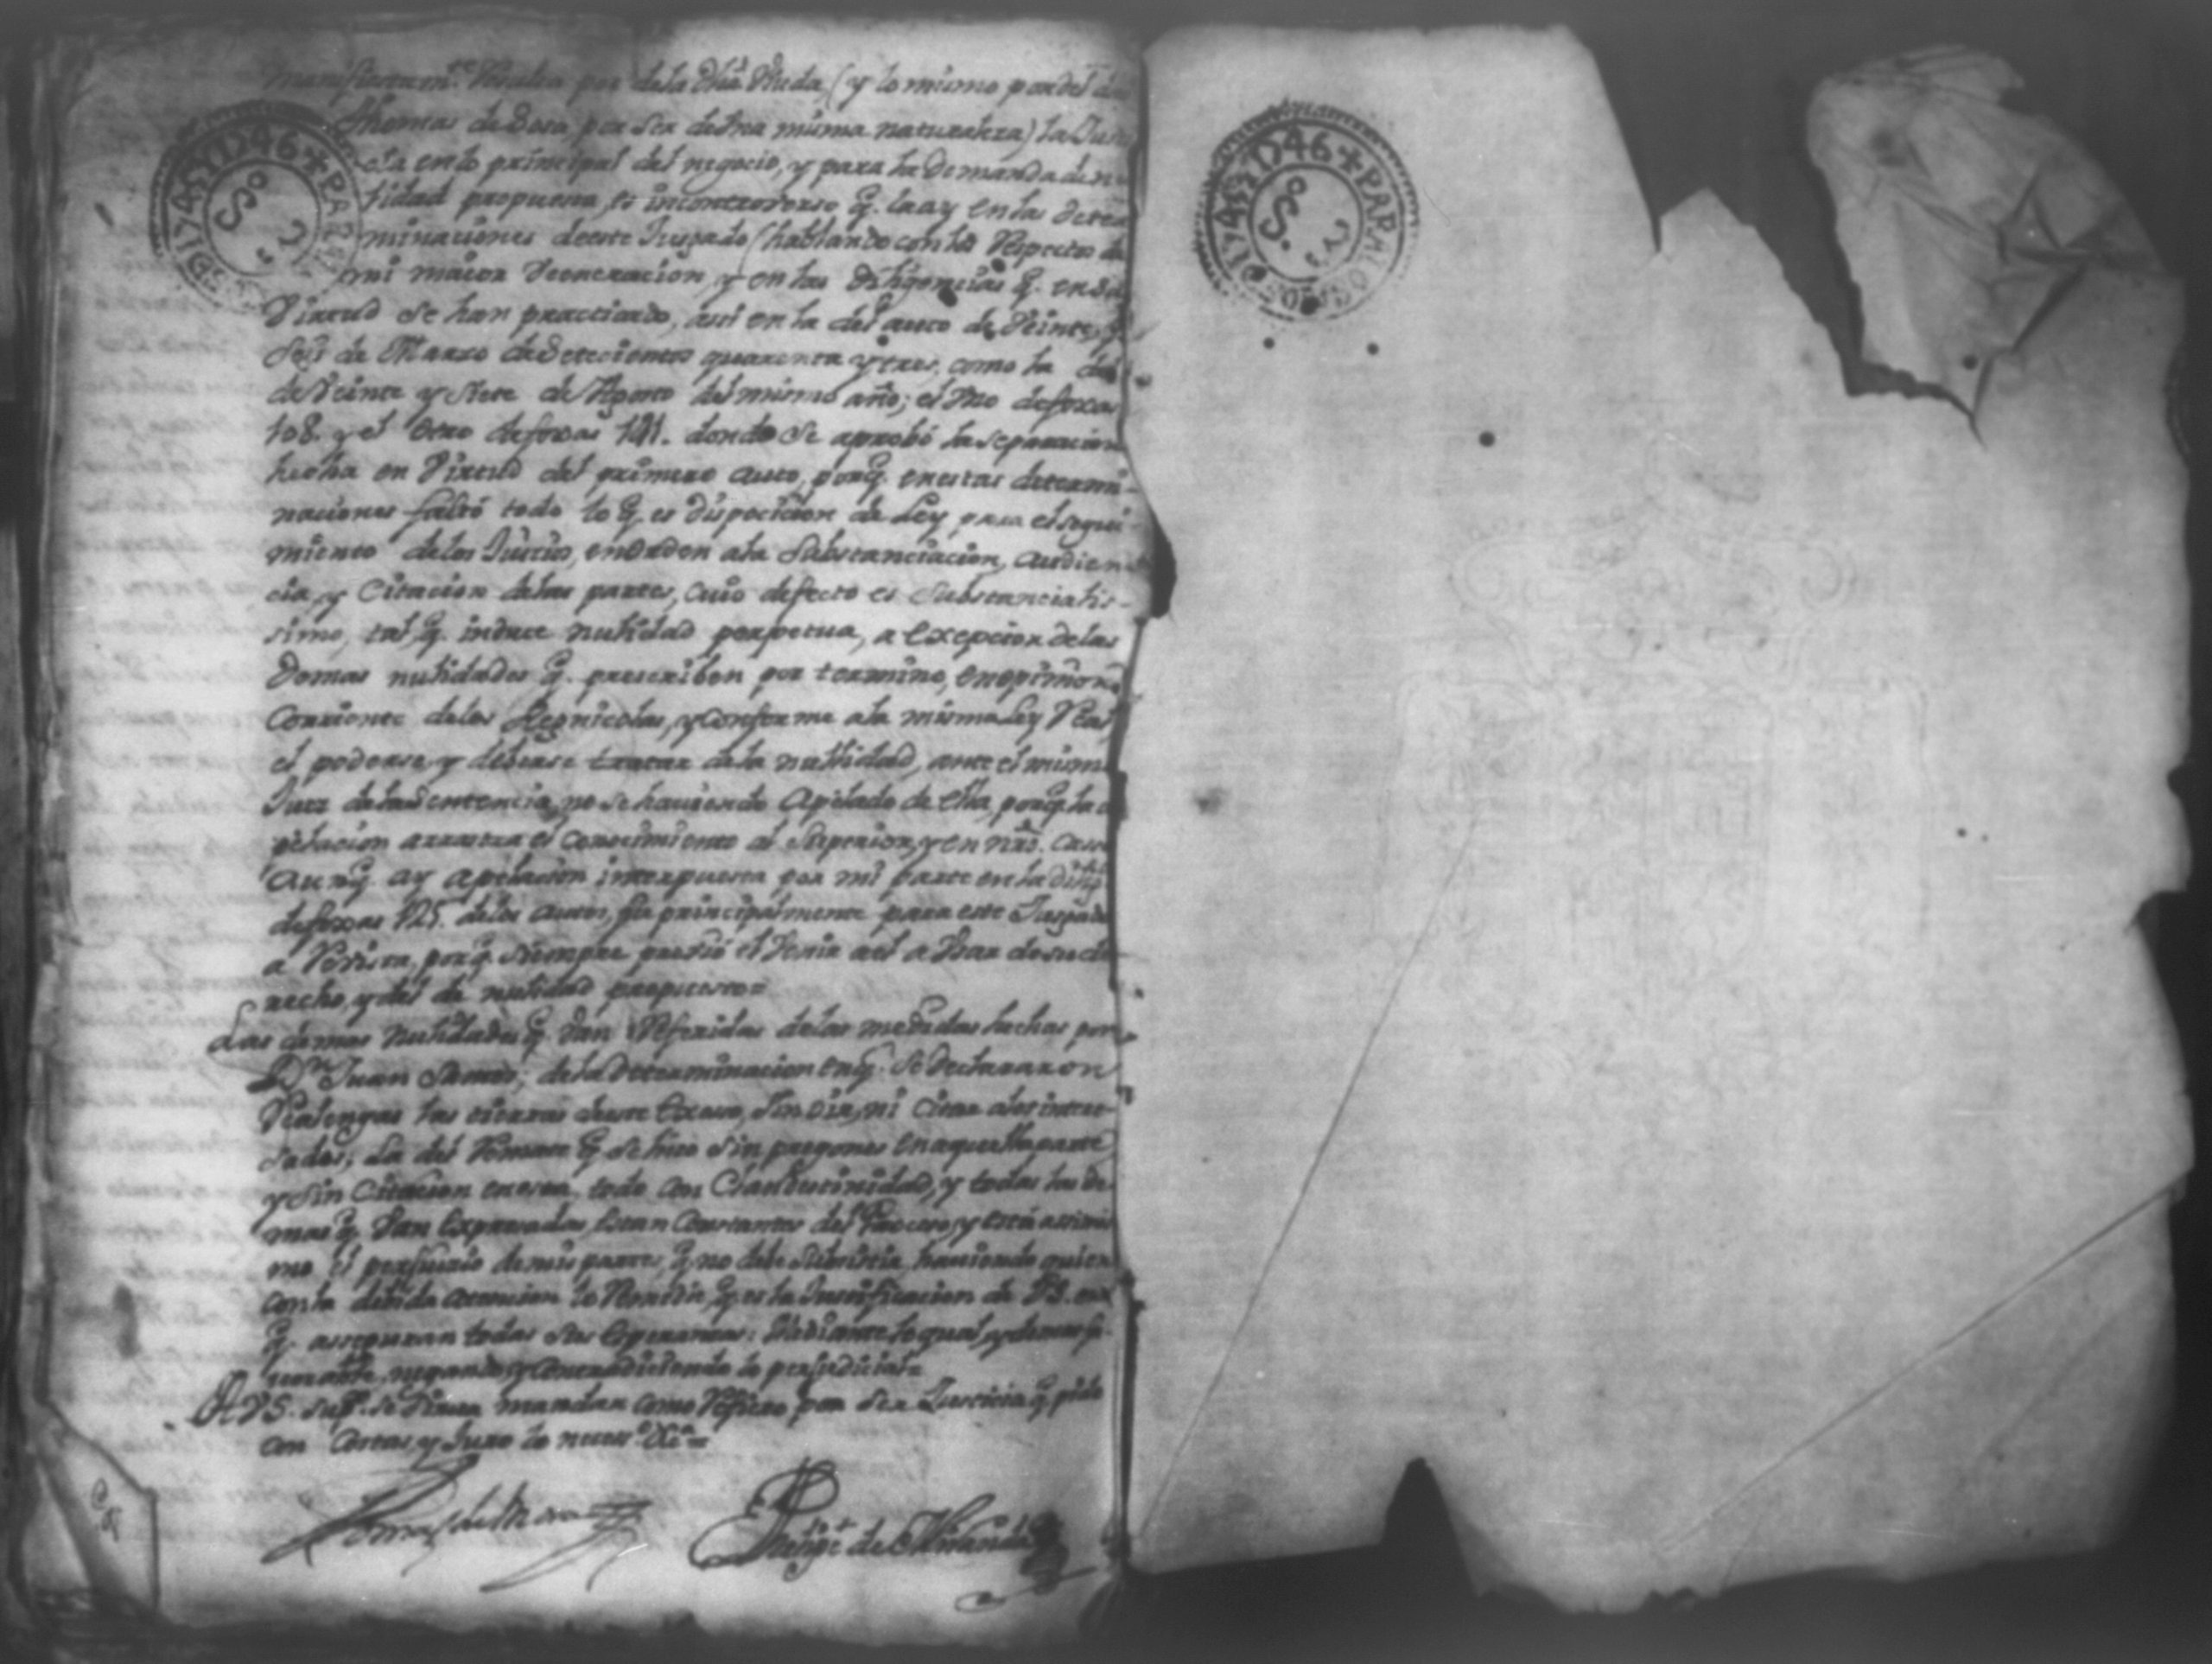 manifiestam.te Resulta por de la dha Viuda (y lo mismo por del dho
Thomas de Sosa por ser de Vna misma naturaleza) la Jus
cia en lo principal del negocio, y para la demanda de nu
lidad propuesta, es incontroverso q. la ay en las deter
minaciones de este Juzgado (hablando con los Respectos de
mi maior Veneracion) y en las diligencias q. en su
Virtud se han practicado, assi en la del auto de Veinte y
Seis de Marzo de Setecientos quarenta y tres, como la del
de Veinte y Siete de Agosto del mismo año; el Vno de foxas
108. y el otro de foxas 121. donde se aprobó la separacion
hecha en Virtud del primero auto, porq. en estas determi-
naciones faltó todo lo q. es disposicion de Ley para el segui-
miento de los Juicios, en orden a la Substanciacion, audien
cia, y Citacion de las partes, cuio defecto es Substancialis-
simo, tal q. induce nulidad perpetua, a excepcion de las
demas nulidades q. prescriben por termino, en opinion
Corriente de los Regnicolas, y conforme a la misma Ley Real
el poderse, y deberse tratar de la nullidad, ante el mismo
Juez de la Sentencia, no se haviendo Apelado de ella, porq. la a
pelacion arrastra el conocimiento al Superior, y en nro. caso
aunq. ay apelacion interpuesta por mi parte en la dilig.a
de foxas 125. de los autos, fue principalmente para este Juzgado
a Vssar de su de
recho, y del de nulidad propuesto=
Las demas Nulidades q. Van Referidas de las medidas hechas por
D.n Juan de la determinacion en q. se declararon
Realengas las tierras sin oir, ni citar a los intere-
sados; La del Remate q. se hizo sin pregones en aquella parte
y sin Citacion todo con Clandestinidad, y todas las de
mas q. Van Expresadas, estan Constantes del Proceso, y está assimis
mo el perjuicio de mis partes, q. no debe Subsistir, haviendo quien
con la debida atencion lo Remedie, q. es la Justificacion de V.S. en
q. asseguran todas sus Esperanzas: Mediante lo qual, y demas fa
vorable, negando, y contradiciendo lo perjudicial=
A V.S. sup.co se Sirva mandar como Refiero por ser Justicia q. pido
con Costas, y Juro lo neces.o &a=
Phelipe de Miranda
1745 Y 1746 + PARA
1745 Y 1746 + PARA LOS